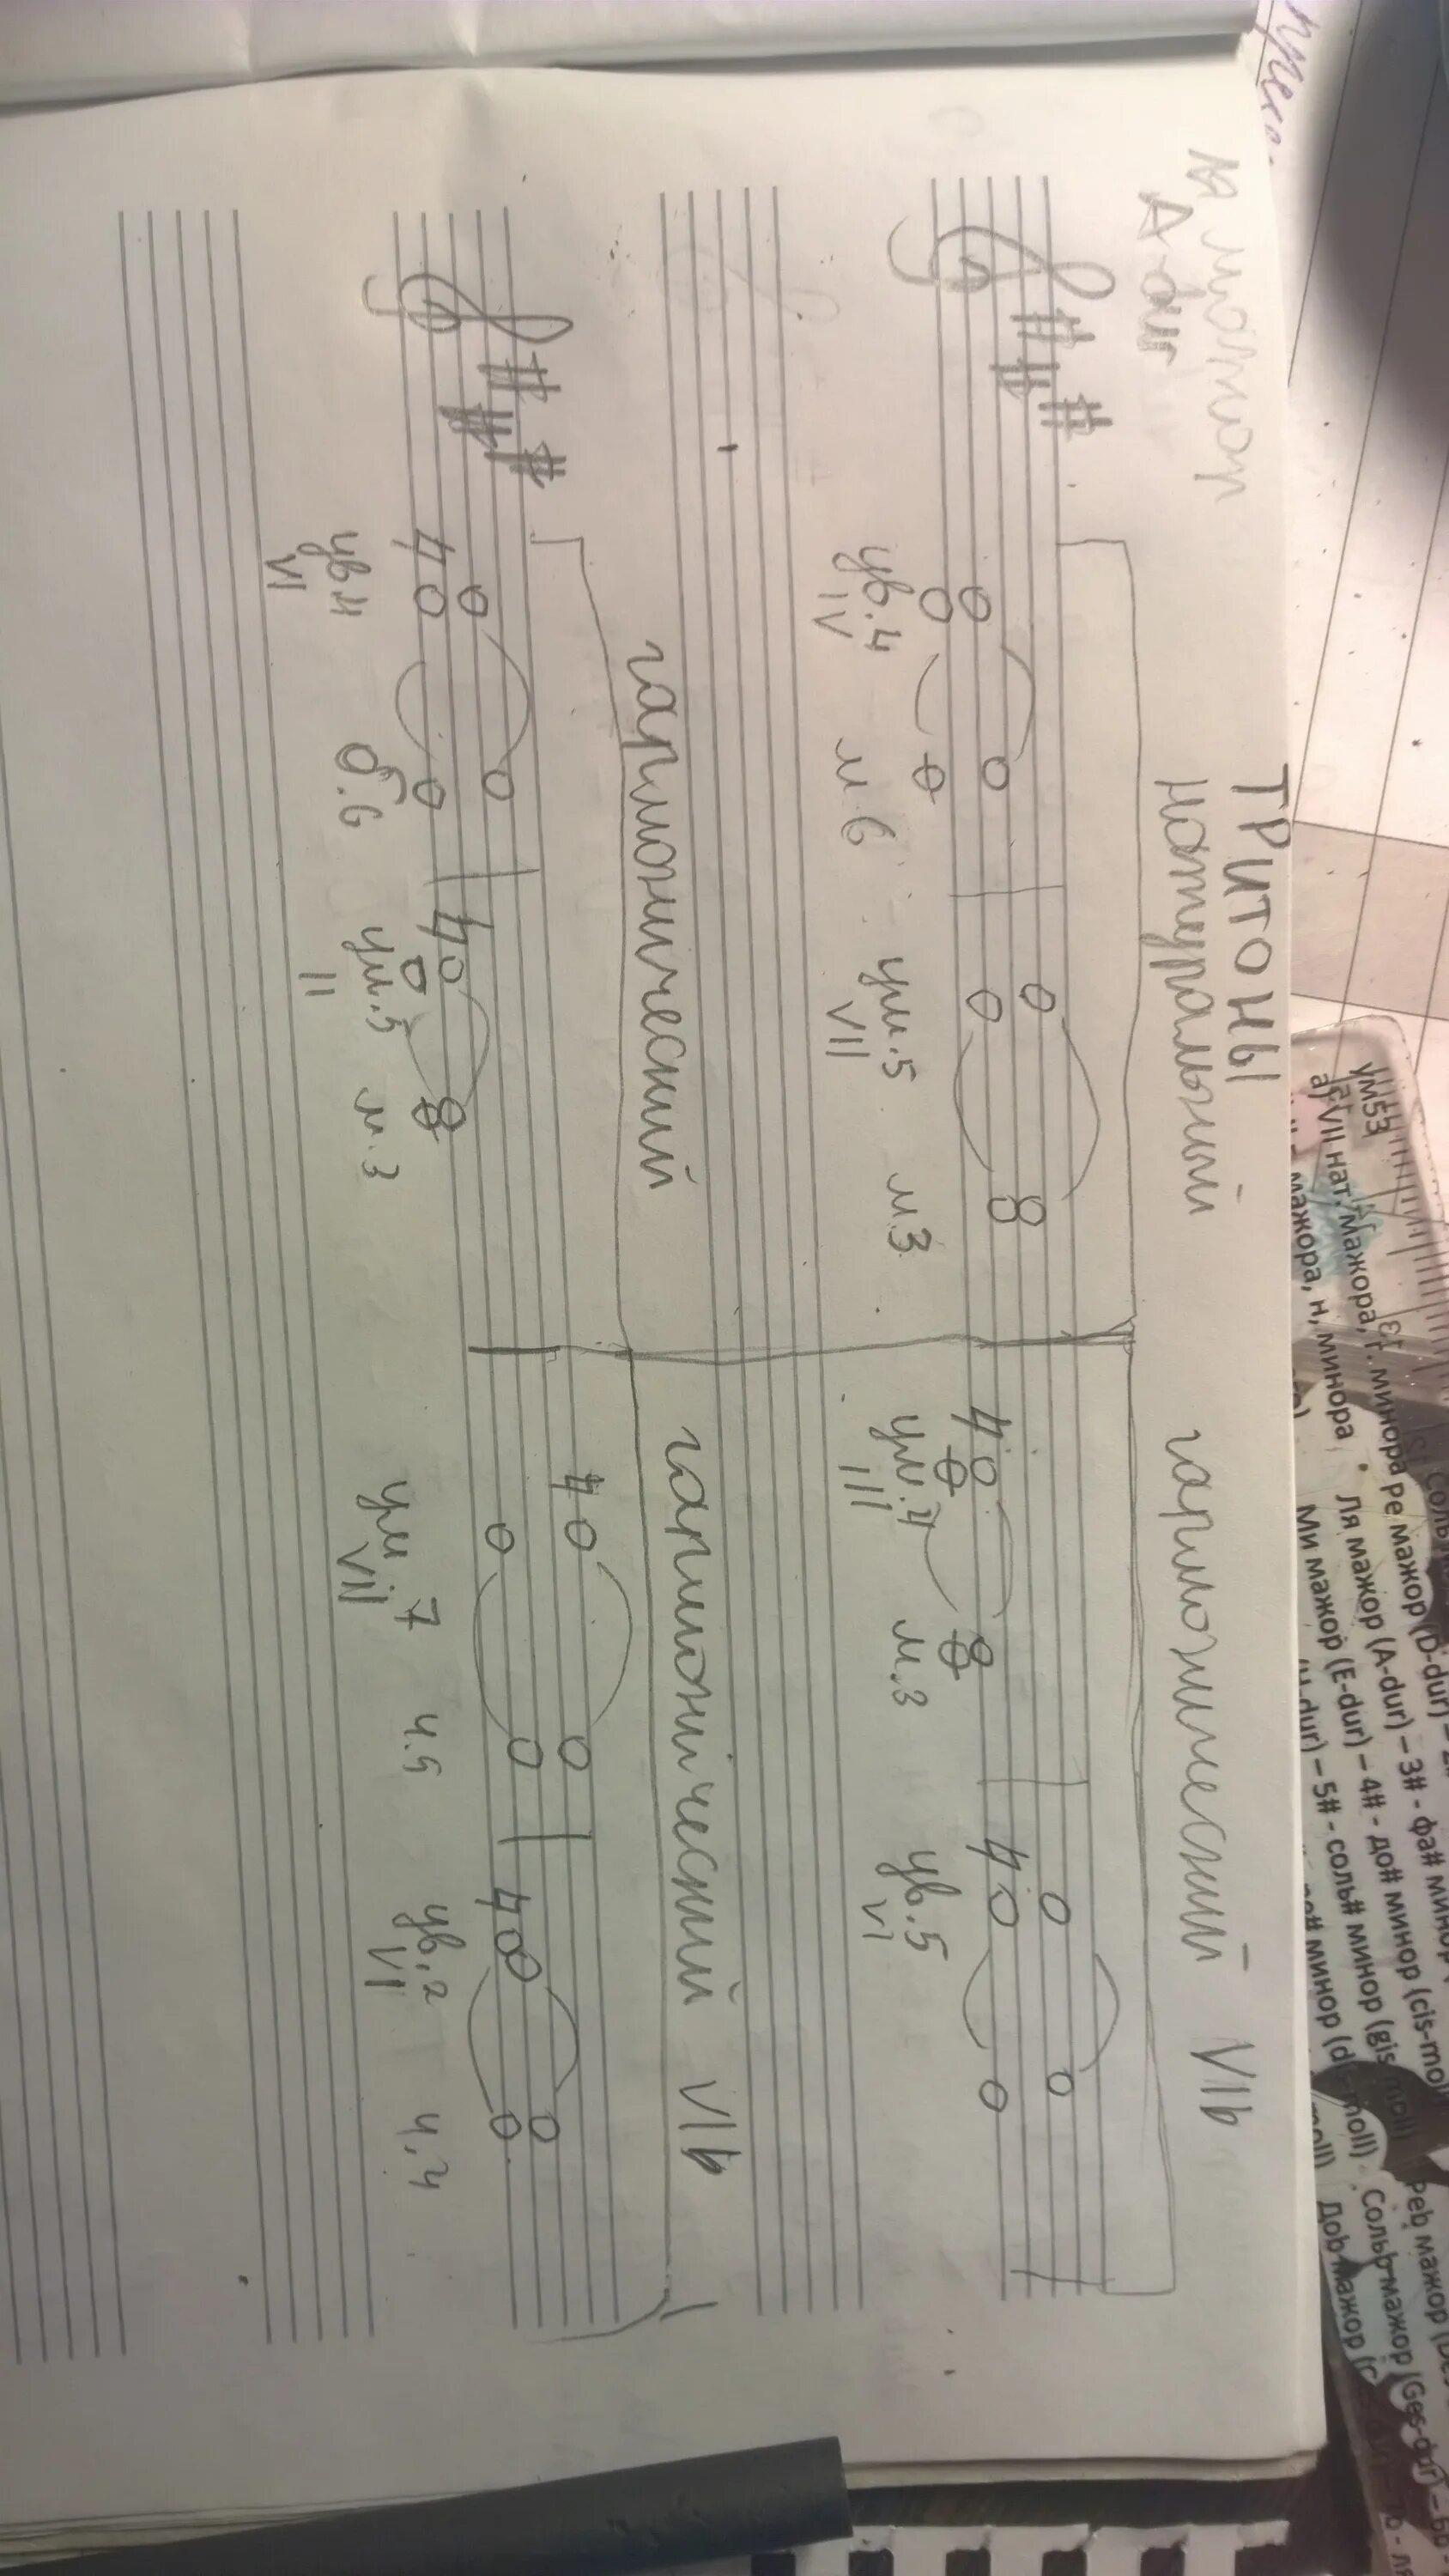 ля мажор
A-dur
ТРИТОНЫ
натуральный гармонический VIb
ув.4 м.6 ум.5 м.3 ум.4 м.3 ув.5
IV VII III VI
гармонический гармонический VIb
ув.4 б.6 ум.5 м.3 ум.7 ч.5 ув.2 ч.4
VI II VII VI
ум53
а) VII нат. мажора, г. минора
мажора, н, минора
Ре мажор (D-dur)
• Ля мажор (A-dur) – 3# - фа# мино
Ми мажор (E-dur) – 4# - до# минор (cis-mol
dur) – 5# - соль# минор (gis moll)
# минор (d moll)
Реb мажор
Сольb мажор (Ges-dur) – 6b
Доb мажор